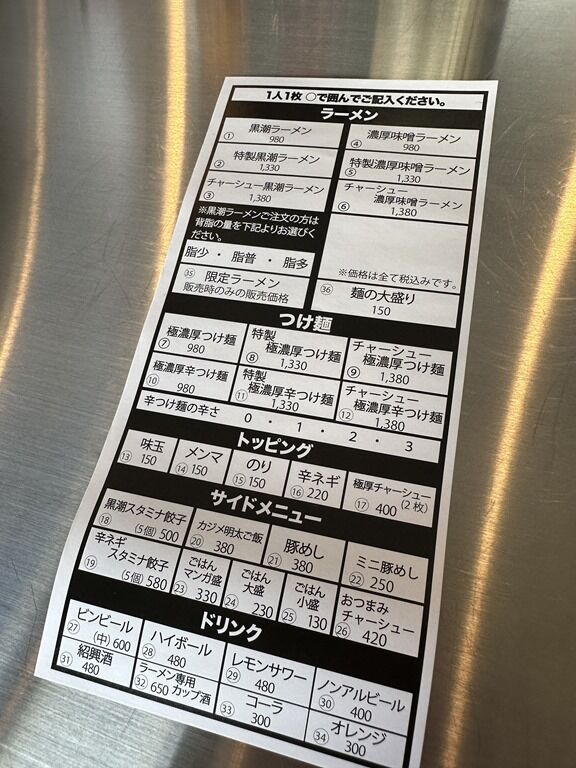 1人1枚 〇で囲んでご記入ください。
ラーメン
① 黒潮ラーメン 980
④ 濃厚味噌ラーメン 980
② 特製黒潮ラーメン 1,330
⑤ 特製濃厚味噌ラーメン 1,330
③ チャーシュー黒潮ラーメン 1,380
⑥ チャーシュー
濃厚味噌ラーメン 1,380
※黒潮ラーメンご注文の方は
背脂の量を下記よりお選びく
ださい。
脂少・脂普・脂多
※価格は全て税込みです。
㉟ 限定ラーメン
販売時のみの販売価格
㊱ 麺の大盛り
150
つけ麺
⑦ 極濃厚つけ麺 980
⑧ 特製
極濃厚つけ麺
1,330
⑨ チャーシュー
極濃厚つけ麺
1,380
⑩ 極濃厚辛つけ麺 980
⑪ 特製
極濃厚辛つけ麺
1,330
⑫ チャーシュー
極濃厚辛つけ麺
1,380
辛つけ麺の辛さ 0・1・2・3
トッピング
⑬ 味玉 150
⑭ メンマ 150
⑮ のり 150
⑯ 辛ネギ 220
⑰ 極厚チャーシュー
400 (2枚)
サイドメニュー
⑱ 黒潮スタミナ餃子
(5個) 500
⑳ カジメ明太ご飯
380
㉑ 豚めし
380
㉒ ミニ豚めし
250
⑲ 辛ネギ
スタミナ餃子
(5個) 580
㉓ ごはん
マンガ盛
330
㉔ ごはん
大盛
230
㉕ ごはん
小盛
130
㉖ おつまみ
チャーシュー
420
ドリンク
㉗ ビンビール
(中) 600
㉘ ハイボール
480
㉙ レモンサワー
480
㉚ ノンアルビール
400
㉛ 紹興酒
480
㉜ ラーメン専用
650 カップ酒
㉝ コーラ
300
㉞ オレンジ
300